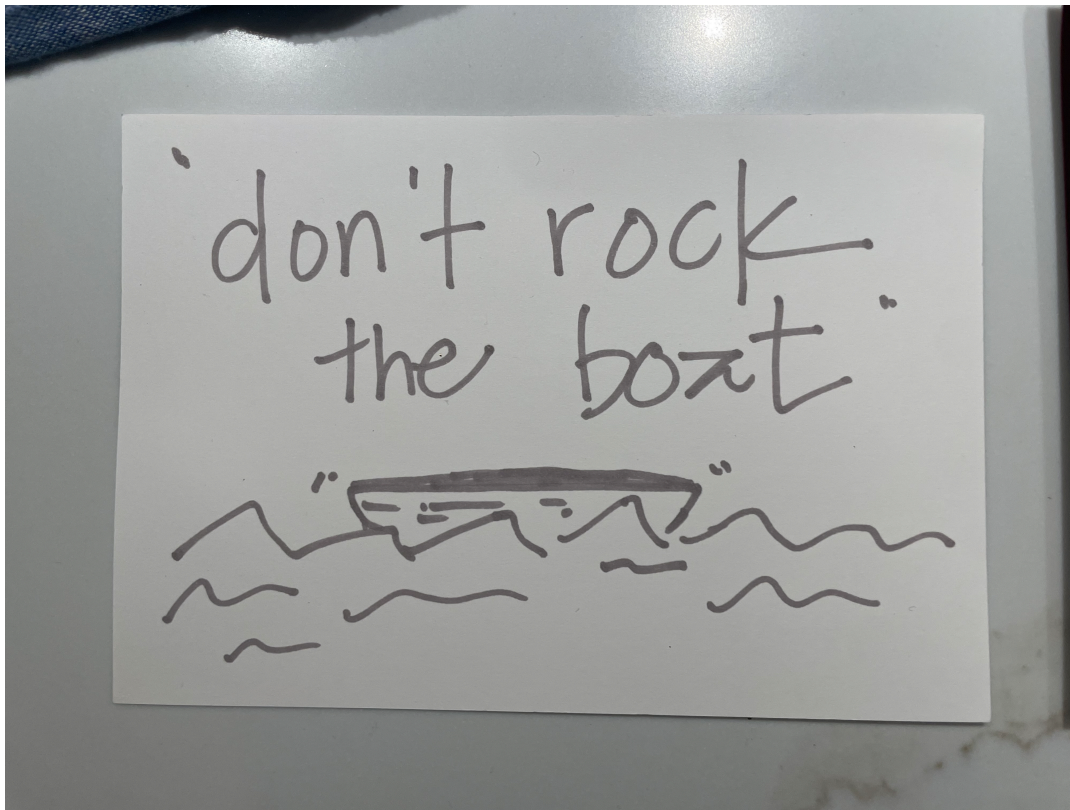 "don't rock
the boat"